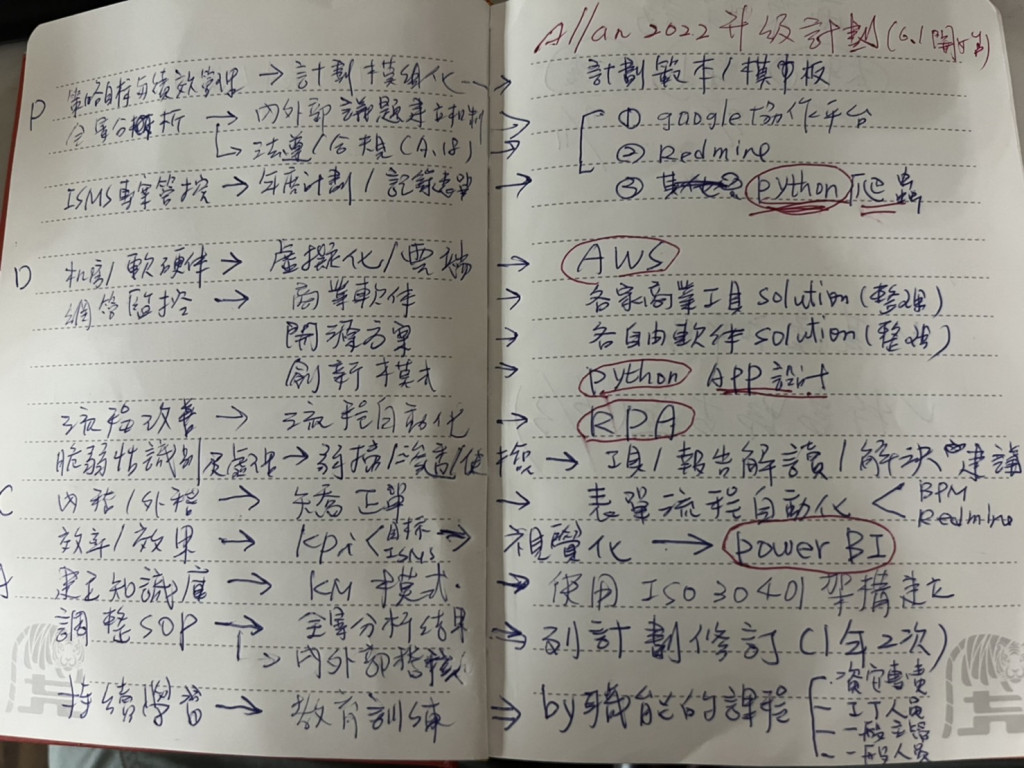 Allan 2022 升級計劃 (6.1 開始)
P 策略目標與績效管理 → 計劃模組化 → 計劃範本/模板
全景分析 → 內外部議題建立和判 → ① google 協作平台
↳ 法遵/合規 (A.18) → ② Redmine
ISMS 專案管控 → 年度計劃/記錄表單 → ③ python 爬蟲
D 机房/軟硬体 → 虛擬化/雲端 → AWS
網管監控 → 商業軟体 → 各家商業工具 solution (整理)
開源方案 → 各自由軟体 solution (整理)
創新模式 → python APP 設計
流程改善 → 流程自動化 → RPA
脆弱性識別及處理 → 弱掃/滲透/健檢 → 工具/報告解讀/解決建議
C 內稽/外稽 → 矯正單 → 表單流程自動化 < BPM
Redmine
效率/效果 → kpi < 目标 ISMS → 視覺化 → power BI
A 建立知識庫 → KM 模式. → 使用 ISO 30401 架構建立
調整 SOP → 全景分析結果 → 列計劃修訂 (1年2次)
↳ 內外部稽核
持續學習 → 教育訓練 → by 職能的課程
資安專責
IT 人員
一般主管
一般人員